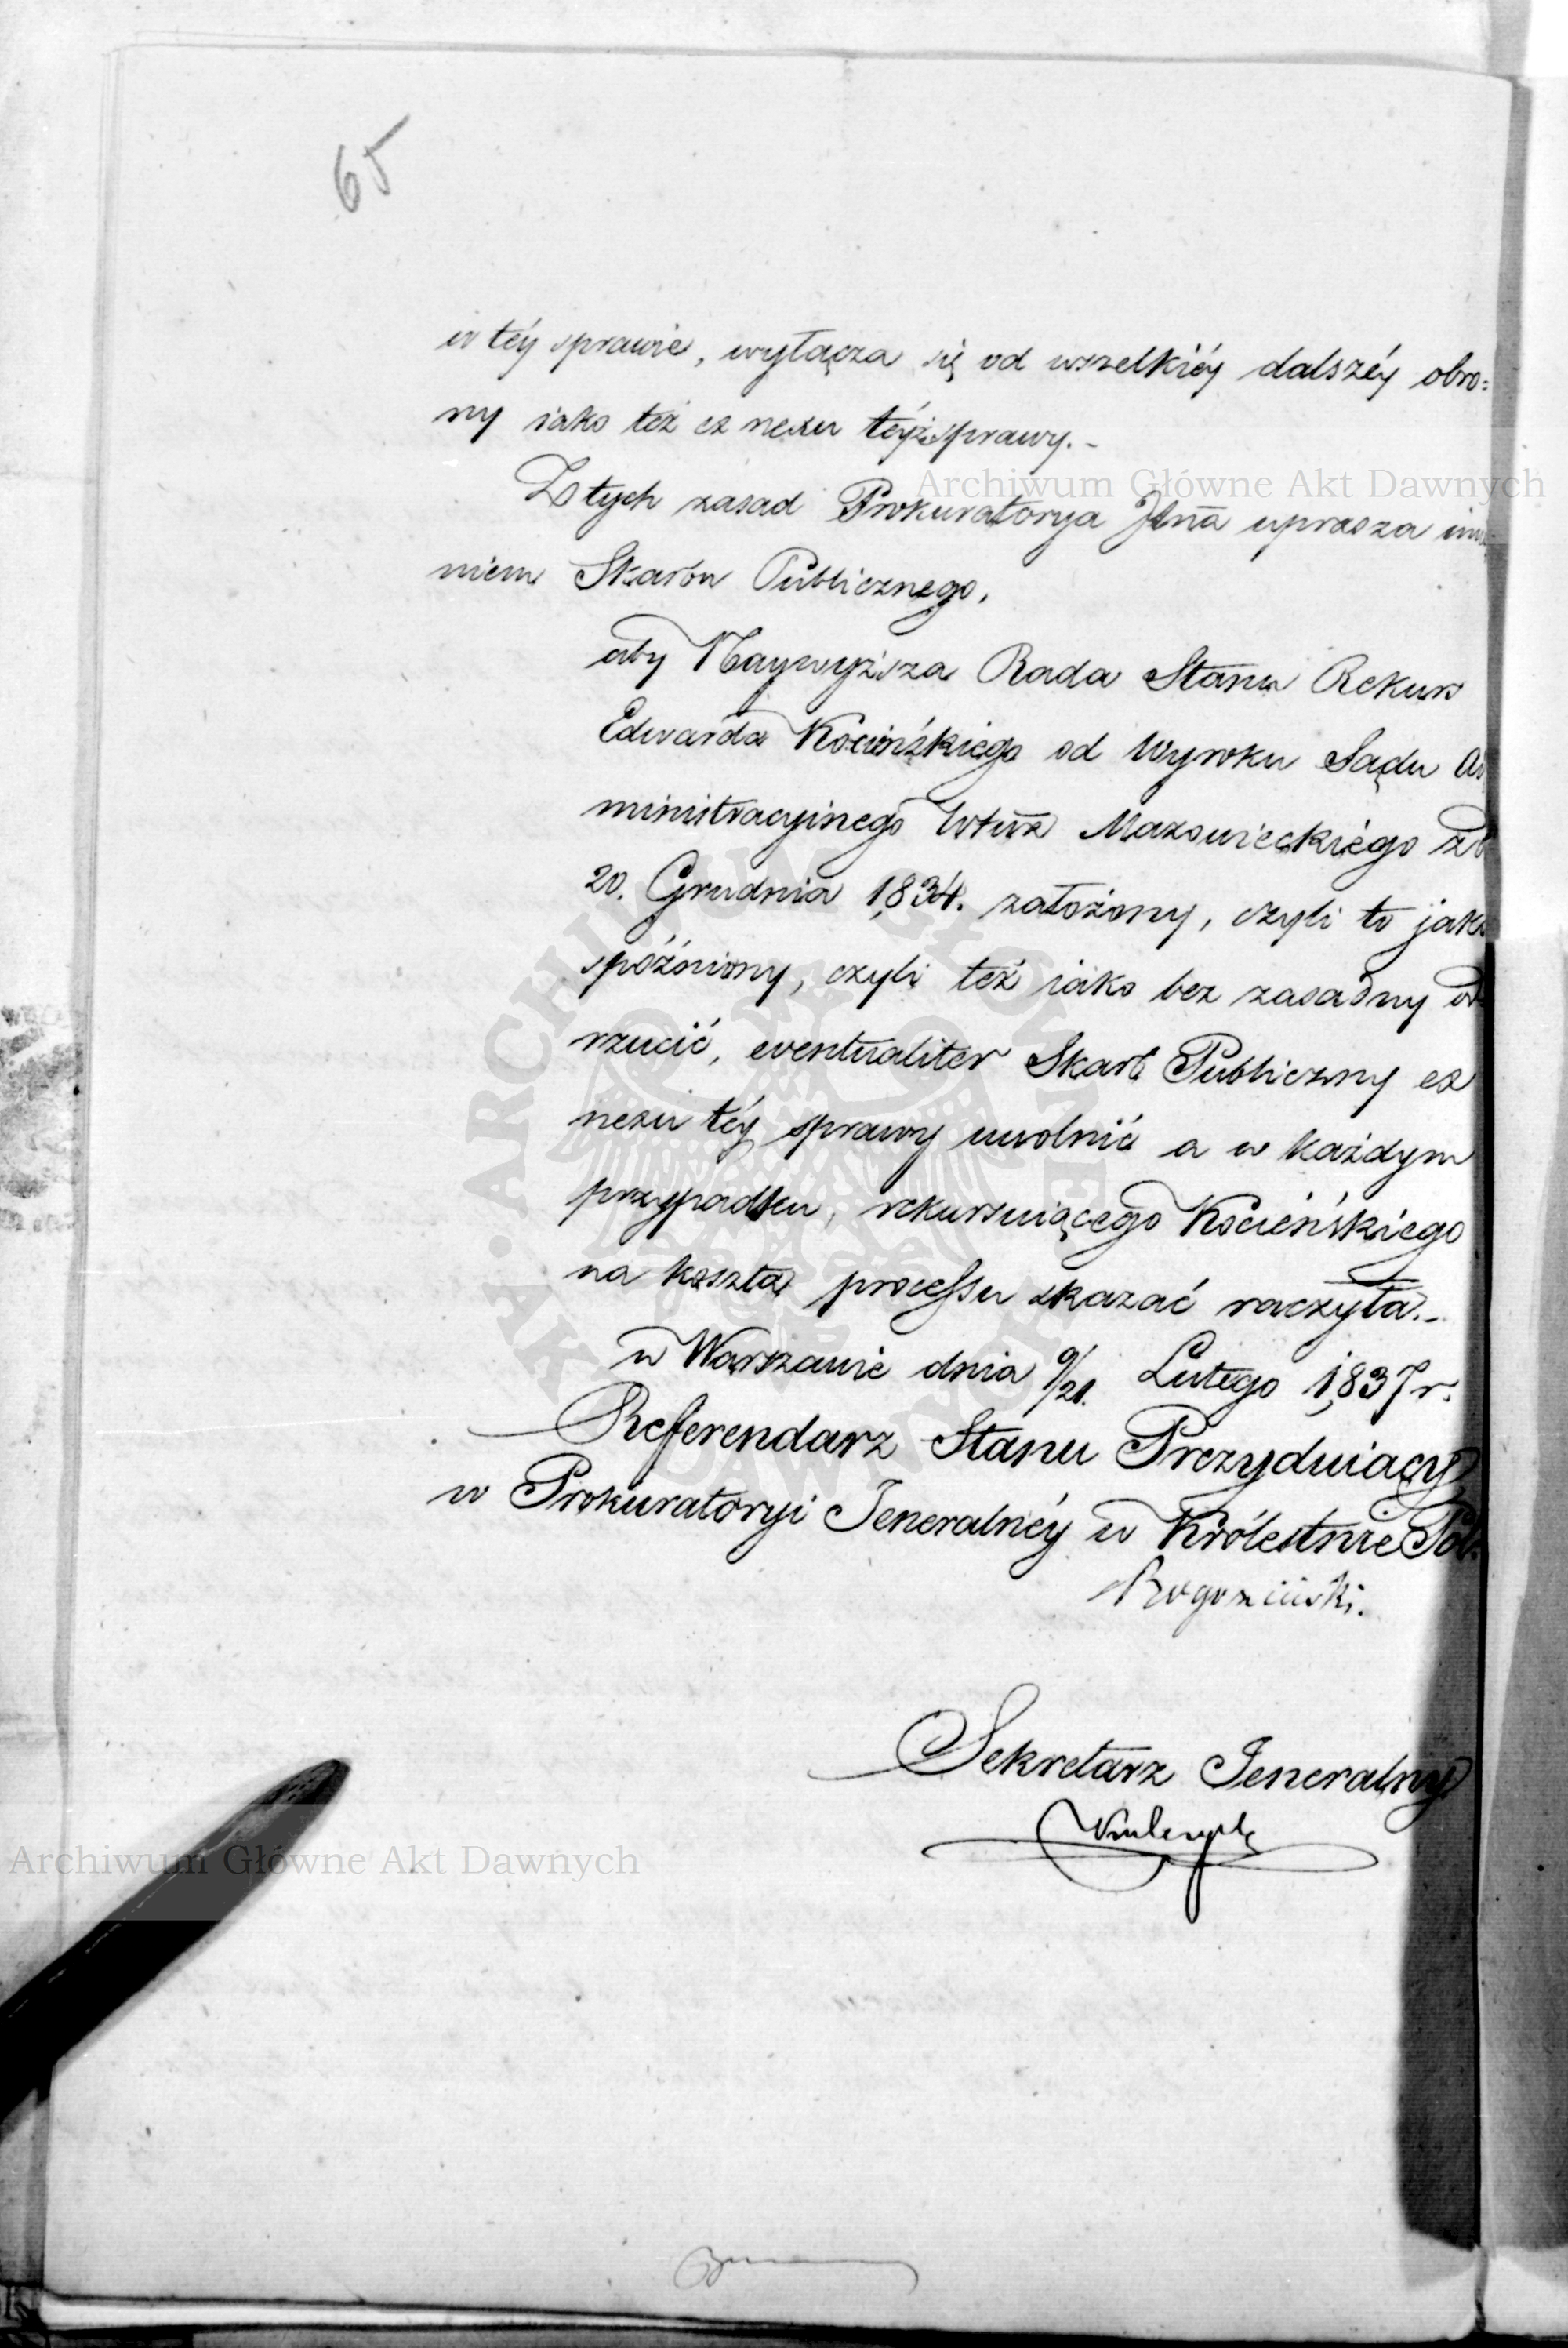 65
w téy sprawie, wyłącza się od wszelkiéy dalszéy obro=
ny iako też ex nexu téyże sprawy.-
Z tych zasad Prokuratorya Jlna uprasza imie
niem Skarbu Publicznego,
aby Naywyższa Rada Stanu Rekurs
Edwarda Kocieńskiego od Wyroku Sądu Ad
ministracyinego Wdztwa Mazowieckiego z d
20. Grudnia 1834. założony, czyli to jako
spóźniony, czyli też iako bez zasadny od
rzucić, eventualiter Skarb Publiczny ex
nexu téy sprawy uwolnić a w każdym
przypadku, rekursuiącego Kocieńskiego
na koszta processu skazać raczyła.-
w Warszawie dnia 9/21. Lutego 1837 r.
Referendarz Stanu Prezyduiący
w Prokuratoryi Jeneralnéy w Królestwie Pol.
Rogoziński.
Sekretarz Jeneralny
Archiwum Główne Akt Dawnych
Archiwum Główne Akt Dawnych
ARCHIWUM GŁÓWNE AKT DAWNYCH